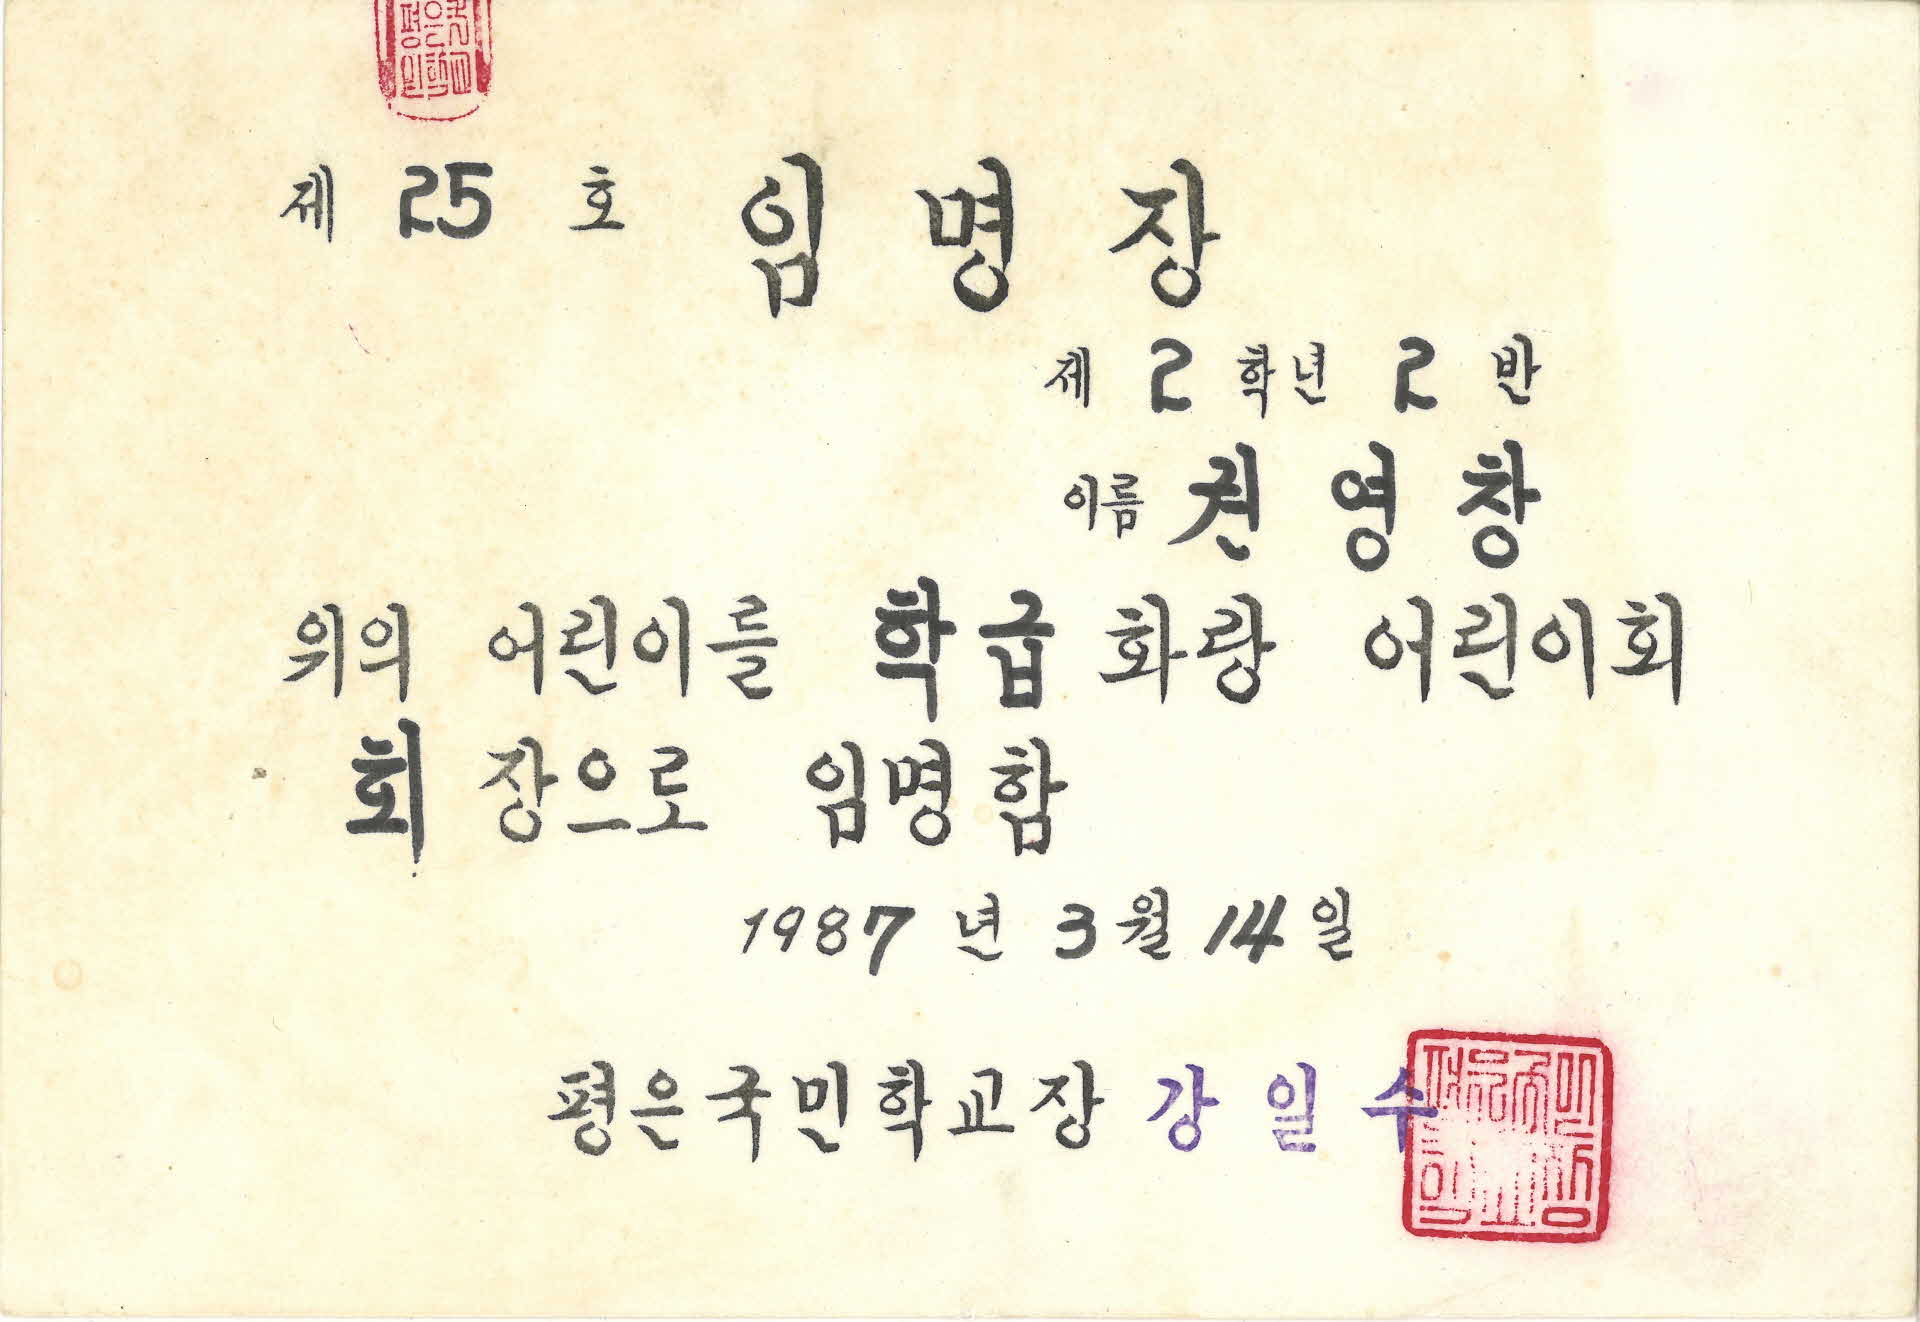 제 25 호 임 명 장
제 2 학년 2 반
이름 권 영 창
위의 어린이를 학급 화랑 어린이회
회 장으로 임명함
1987 년 3 월 14 일
평은국민학교장 강 일 수